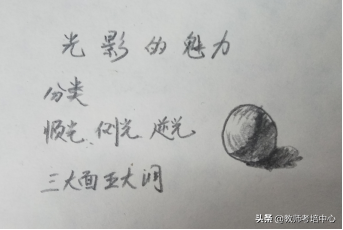 光影的魅力
分类
顺光、侧光、逆光
三大面五大调
头条 @教师考培中心